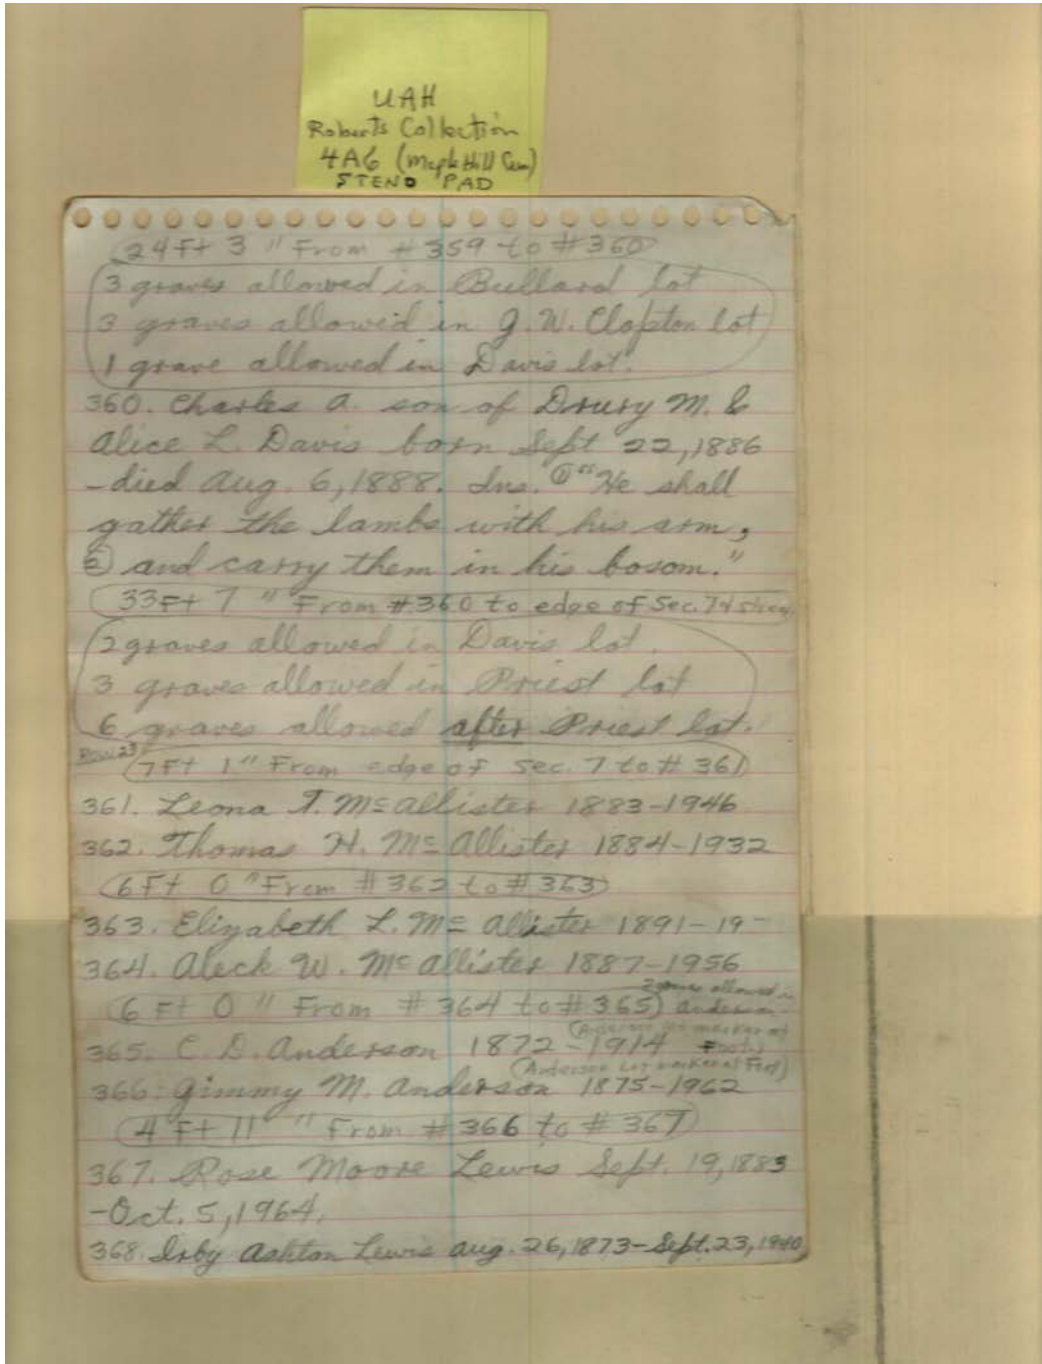 UAH
Roberts Collection
4A6 (Maple Hill Cem)
STENO PAD
24Ft 3 " From #359 to #360
3 graves allowed in Bullard lot
3 graves allowed in J. W. Clopton lot
1 grave allowed in Davis lot.
360. Charles A. son of Drury M. &
Alice L. Davis born Sept 22, 1886
-died Aug. 6, 1888. Ins. ① "He shall
gather the lambs with his arm,
② and carry them in his bosom."
33Ft 7 " From #360 to edge of Sec. 7
2 graves allowed in Davis lot.
3 graves allowed in Priest lot
6 graves allowed after Priest lot.
Row 23
7Ft 1" From edge of Sec. 7 to #361
361. Leona T. McAllister 1883-1946
362. Thomas H. McAllister 1884-1932
6Ft 0 "From #362 to #363
363. Elizabeth L. McAllister 1891-19-
364. Aleck W. McAllister 1887-1956
2 graves allowed in
6 Ft 0 " From #364 to #365) Anderson
(Anderson lot marker at
365. C. D. Anderson 1872-1914 Foot)
(Anderson Lot marker at Feet)
366. Gimmy M. Anderson 1875-1962
4 Ft 11 " From #366 to #367
367. Rose Moore Lewis Sept. 19, 1883
-Oct. 5, 1964.
368. Irby Ashton Lewis Aug. 26, 1873-Sept. 23, 1940